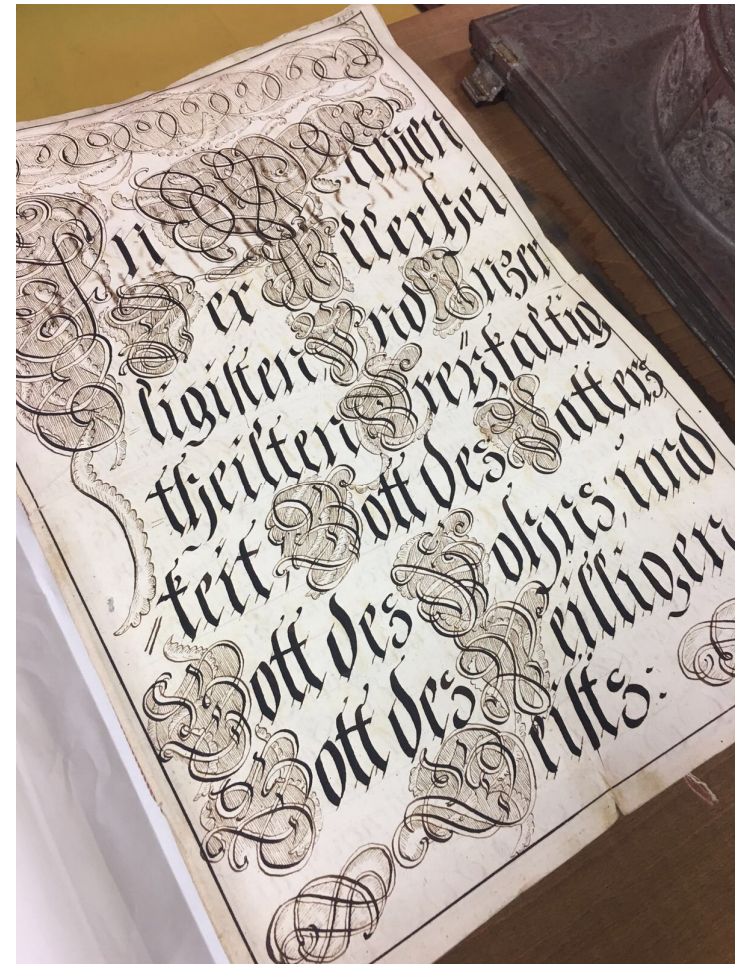 In Namen
Der Allerhei
ligisten Vnd Vnzer
=theilten Dreÿfaltig
=keit Gott des Vatters
Gott des Sohns, und
Gott des Heilligen
Geists: